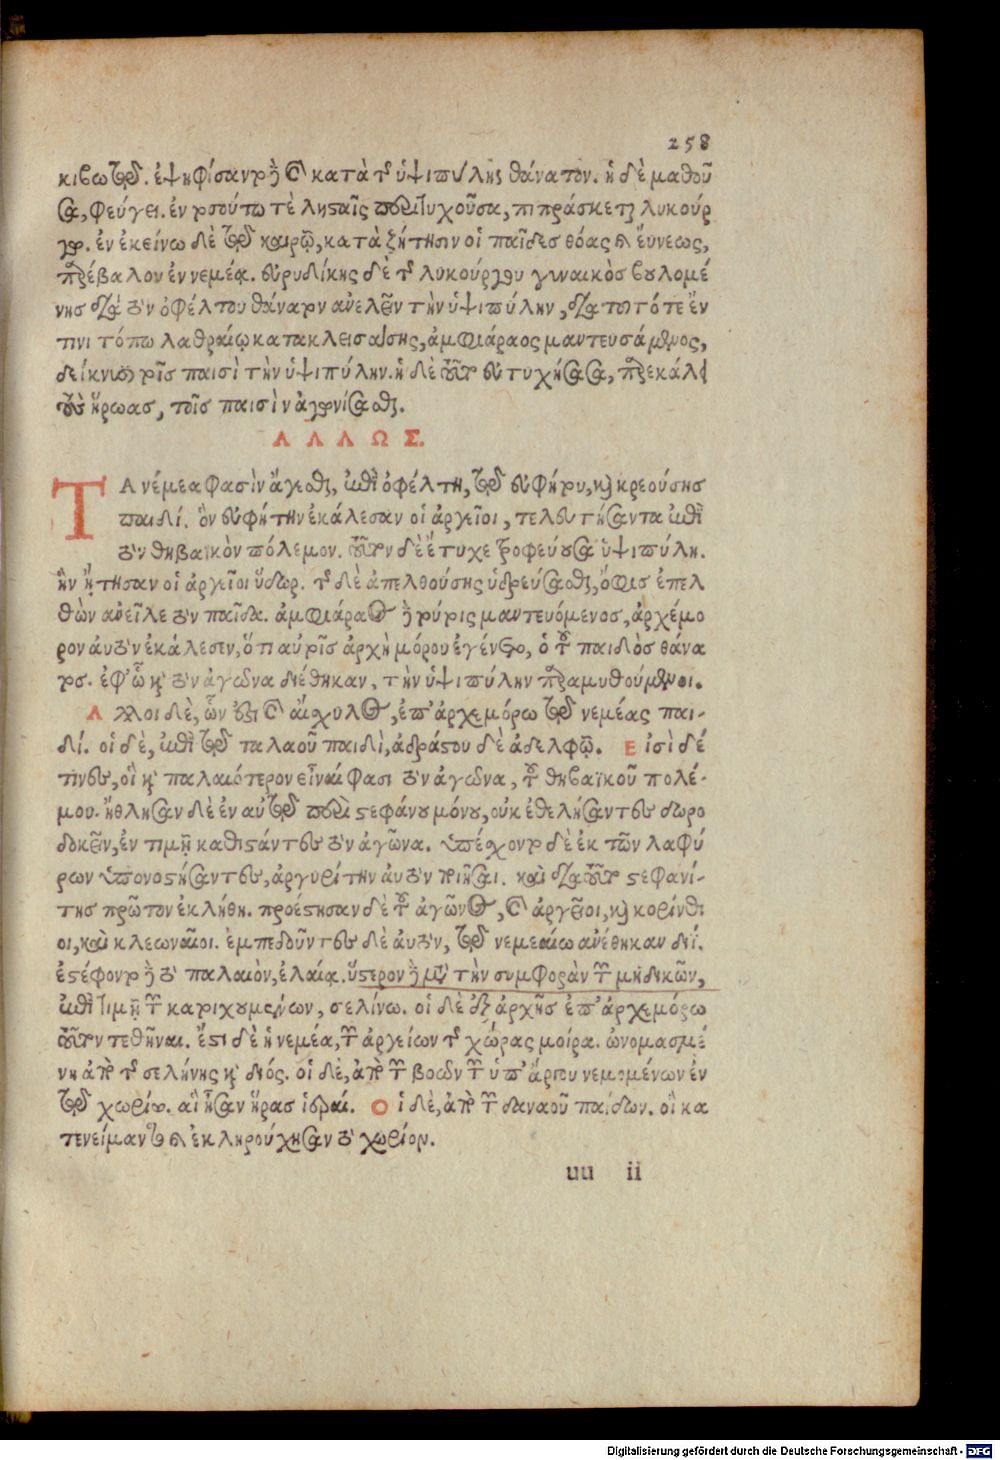 258
κιβωτῶ. ἐψηφίσαντο γὰρ καὶ κατὰ τῆς ὑψιπύλης θάνατον. ἡ δὲ μαθοῦ
σα, φεύγει. ἐν τοσούτω τὲ λησταῖς περιτυχοῦσα, πιπράσκεται λυκούρ
γω. ἐν ἐκείνω δὲ τῶ καιρῷ, κατὰ ζήτησιν οἱ παῖδεσ θόας καὶ ἔυνεως,
παρέβαλον ἐν νεμέᾳ. εὐρυδίκης δὲ τῆς λυκούργου γυναικὸσ βουλομέ
νησ διὰ τὸν ὀφέλτου θάνατον ἀνελεῖν τὴν ὑψιπύλην, διὰ τοῦτό τε ἔν
τινι τόπω λαθραίῳ κατακλεισάσης, ἀμφιάραος μαντευσάμενος,
δείκνυσι τοῖς παισὶ τὴν ὑψιπύλην. ἡ δὲ τούτων εὐτυχήσασα, παρεκάλει
τοὺς ἥρωασ, τοῖς παισὶν ἀγωνίσασθαι.
ΑΛΛΩΣ.
ΤΑ νέμεα φασὶν ἄγεσθαι, ἐπὶ ὀφέλτῃ, τῶ εὐφήτου, καὶ κρεούσησ
παιδί. ὃν εὐφήτην ἐκάλεσαν οἱ ἀργεῖοι, τελευτήσαντα ἐπὶ
τὸν θηβαϊκὸν πόλεμον. τοῦτον δὲ ἔτυχε τροφεύουσα ὑψιπύλη.
ἣν ᾔτησαν οἱ ἀργεῖοι ὕδωρ. τῆς δὲ ἀπελθούσης ὑδρεύσασθαι, ὄφις ἐπελ
θὼν ἀνεῖλε τὸν παῖδα. ἀμφιάραος γὰρ τούτοις μαντευόμενοσ, ἀρχέμο
ρον ἀυτὸν ἐκάλεσεν, ὅτι αὐτοῖς ἀρχὴ μόρου ἐγένετο, ὁ τοῦ παιδὸσ θάνα
τοσ. ἐφ' ᾧ καὶ τὸν ἀγῶνα διέθηκαν, τὴν ὑψιπύλην παραμυθούμενοι.
Αλλοι δὲ, ὧν ἐστι καὶ αἰσχύλος, ἐπ' ἀρχεμόρω τῶ νεμέας παι-
δί. οἱ δὲ, ἐπὶ τῶ ταλαοῦ παιδὶ, ἀδράστου δὲ ἀδελφῷ. Εἰσὶ δέ
τινες, οἳ καὶ παλαιότερον εἶναί φασι τὸν ἀγῶνα, τοῦ θηβαϊκοῦ πολέ-
μου. ἤθλησαν δὲ ἐν αὐτῶ περὶ στεφάνου μόνου, οὐκ ἐθελήσαντες δωρο
δοκεῖν, ἐν τιμῇ καθιστάντες τὸν ἀγῶνα. ὑπέσχοντο δὲ ἐκ τῶν λαφύ
ρων ὑπονοστήσαντες, ἀργυρίτην ἀυτὸν ποιῆσαι. καὶ διὰ τοῦτο στεφανί-
της πρῶτον ἐκλήθη. προέστησαν δὲ τοῦ ἀγῶνος, καὶ ἀργεῖοι, καὶ κορίνθι
οι, καὶ κλεωναῖοι. ἐμπεδοῦντες δὲ ἀυτὸν, τῶ νεμεαίω ἀνέθηκαν διΐ.
ἐστέφοντο γὰρ τὸ παλαιὸν, ἐλαία. ὕστερον γὰρ μετὰ τὴν συμφορὰν τῶν μηδικῶν,
ἐπὶ τιμῇ τῶν κατοιχομένων, σελίνω. οἱ δὲ ἐξ ἀρχῆσ ἐπ' ἀρχεμόρω
τοῦτον τεθῆναι. ἔστι δὲ ἡ νεμέα, τῶν ἀργείων τῆς χώρας μοίρα. ὠνομασμέ
νη ἀπὸ τῆς σελήνης καὶ διός. οἱ δὲ, ἀπὸ τῶν βοῶν τῶν ὑπ' ἄργου νεμομένων ἐν
τῶ χωρίω. αἳ ἦσαν ἥρασ ἱεραί. Οἱ δὲ, ἀπὸ τῶν δαναοῦ παίδων. οἳ κα
τενείμαντο καὶ ἐκληρούχησαν τὸ χωρίον.
uu ii
Digitalisierung gefördert durch die Deutsche Forschungsgemeinschaft - DFG